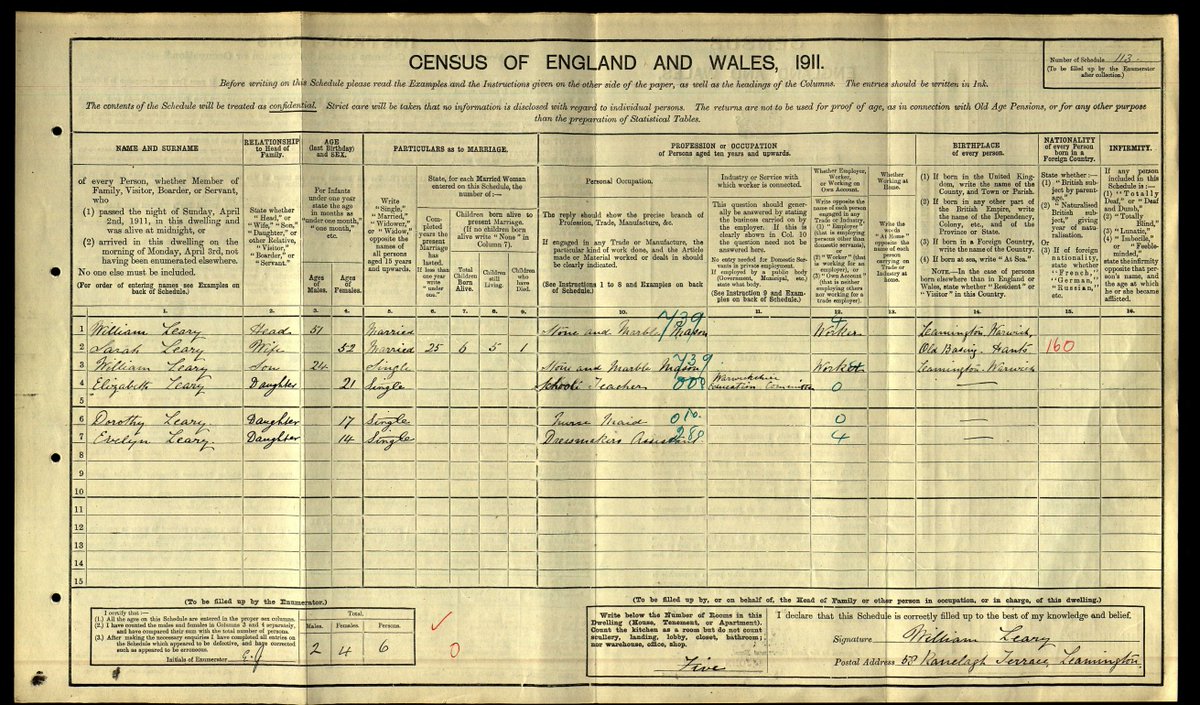 CENSUS OF ENGLAND AND WALES, 1911.
Number of Schedule 113.
(To be filled up by the Enumerator
after collection.)
Before writing on this Schedule please read the Examples and the Instructions given on the other side of the paper, as well as the headings of the Columns. The entries should be written in Ink.
The contents of the Schedule will be treated as confidential. Strict care will be taken that no information is disclosed with regard to individual persons. The returns are not to be used for proof of age, as in connection with Old Age Pensions, or for any other purpose
than the preparation of Statistical Tables.
NAME AND SURNAME
of every Person, whether Member of
Family, Visitor, Boarder, or Servant,
who
(1) passed the night of Sunday, April
2nd, 1911, in this dwelling and
was alive at midnight, or
(2) arrived in this dwelling on the
morning of Monday, April 3rd, not
having been enumerated elsewhere.
No one else must be included.
(For order of entering names see Examples on
back of Schedule.)
RELATIONSHIP
to Head of
Family.
State whether
"Head," or
"Wife," "Son,"
"Daughter," or
other Relative,
"Visitor,"
"Boarder," or
"Servant."
AGE
(last Birthday)
and SEX.
For Infants
under one year
state the age
in months as
"under one month,"
"one month,"
etc.
Ages
of
Males.
Ages
of
Females.
PARTICULARS as to MARRIAGE.
Write
"Single,"
"Married,"
"Widower,"
or "Widow,"
opposite the
names of
all persons
aged 15 years
and upwards.
State, for each Married Woman
entered on this Schedule, the
number of:—
Completed
years the
present
Marriage
has
lasted.
If less than
one year
write
"under
one."
Children born alive to
present Marriage.
(If no children born
alive write "None" in
Column 7).
Total
Children
Born
Alive.
Children
still
Living.
Children
who
have
Died.
PROFESSION or OCCUPATION
of Persons aged ten years and upwards.
Personal Occupation.
The reply should show the precise branch of
Profession, Trade, Manufacture, &c.
If engaged in any Trade or Manufacture, the
particular kind of work done, and the Article
made or Material worked or dealt in should
be clearly indicated.
(See Instructions 1 to 8 and Examples on back
of Schedule.)
Industry or Service with
which worker is connected.
This question should generally
be answered by stating
the business carried on by
the employer. If this is
clearly shown in Col. 10
the question need not be
answered here.
No entry needed for Domestic Servants
in private employment.
If employed by a public body
(Government, Municipal, etc.)
state what body.
(See Instruction 9 and Examples
on back of Schedule.)
Whether Employer,
Worker,
or Working on
Own Account.
Write opposite the
name of each person
engaged in any
Trade or Industry,
(1) "Employer"
(that is employing
persons other than
domestic servants),
or
(2) "Worker" (that
is working for an
employer), or
(3) "Own Account"
(that is neither
employing others
nor working for a
trade employer).
Whether
Working at
Home.
Write the
words
"At Home"
opposite the
name of each
person
carrying on
Trade or
Industry at
home.
BIRTHPLACE
of every person.
(1) If born in the United Kingdom,
write the name of the
County, and Town or Parish.
(2) If born in any other part of
the British Empire, write
the name of the Dependency,
Colony, etc., and of the
Province or State.
(3) If born in a Foreign Country,
write the name of the Country.
(4) If born at sea, write "At Sea."
NOTE.—In the case of persons
born elsewhere than in England or
Wales, state whether "Resident" or
"Visitor" in this Country.
NATIONALITY
of every Person
born in a
Foreign Country.
State whether:—
(1) "British subject
by parentage,"
(2) "Naturalised
British
subject," giving
year of naturalisation.
Or
(3) If of foreign
nationality,
state whether
"French,"
"German,"
"Russian,"
etc.
INFIRMITY.
If any person
included in this
Schedule is:—
(1) "Totally
Deaf," or "Deaf
and Dumb,"
(2) "Totally
Blind,"
(3) "Lunatic,"
(4) "Imbecile,"
or "Feeble-
minded,"
state the infirmity
opposite that person's
name, and
the age at which
he or she became
afflicted.
1. 2. 3. 4. 5. 6. 7. 8. 9. 10. 11. 12. 13. 14. 15. 16.
1 William Leary Head 51 Married Stone and Marble Mason 739 Worker 4 Leamington Warwick
2 Sarah Leary Wife 52 Married 25 6 5 1 Old Basing. Hants 160
3 William Leary Son 24 Single Stone and Marble Mason 739 Worker Leamington Warwick
4 Elizabeth Leary Daughter 21 Single School Teacher Warwickshire Education Committee 0 —
5
6 Dorothy Leary Daughter 17 Single Nurse Maid 0 —
7 Evelyn Leary. Daughter 14 Single Dressmakers Assistant. 4 —
8
9
10
11
12
13
14
15
(To be filled up by the Enumerator.)
I certify that:—
(1.) All the ages on this Schedule are entered in the proper sex columns.
(2.) I have counted the males and females in Columns 3 and 4 separately,
and have compared their sum with the total number of persons.
(3.) After making the necessary enquiries I have completed all entries on
the Schedule which appeared to be defective, and have corrected
such as appeared to be erroneous.
Initials of Enumerator
Total.
Males. Females. Persons.
2 4 6
0
(To be filled up by, or on behalf of, the Head of Family or other person in occupation, or in charge, of this dwelling.)
Write below the Number of Rooms in this
Dwelling (House, Tenement, or Apartment).
Count the kitchen as a room but do not count
scullery, landing, lobby, closet, bathroom;
nor warehouse, office, shop.
Five
I declare that this Schedule is correctly filled up to the best of my knowledge and belief.
Signature William Leary
Postal Address 58 Ranelagh Terrace, Leamington.